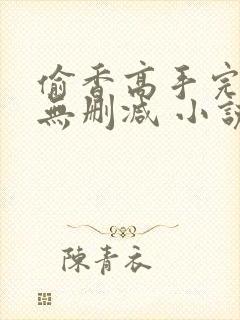 偷香高手完
無刪減 小說
陳青衣